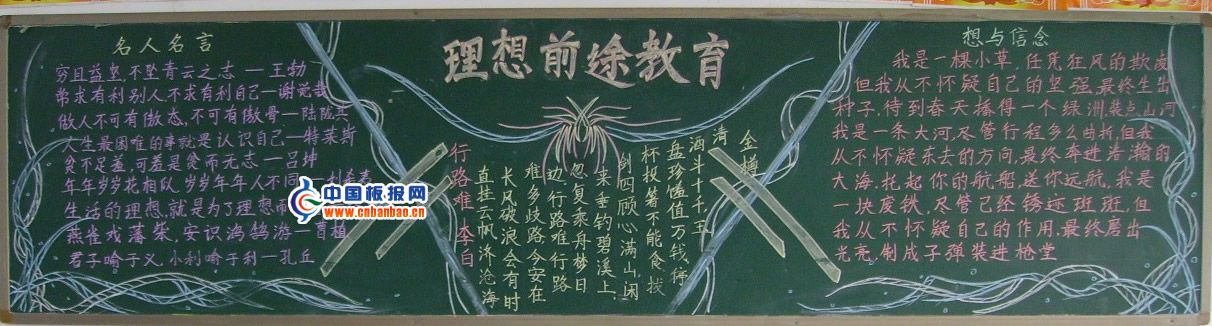 理想前途教育
名人名言
穷且益坚,不坠青云之志—王勃
常求有利别人,不求有利自己—谢觉哉
做人不可有傲态,不可有傲骨—陆陇其
人生最困难的事就是认识自己—特莱斯
贫不足羞,可羞是贫而无志—吕坤
年年岁岁花相似,岁岁年年人不同—刘希夷
生活的理想,就是为了理想而
燕雀戏藩柴,安识鸿鹄游—曹植
君子喻于义,小利喻于利—孔丘
中国板报网
www.cnbanbao.cn
行路难 李白
金樽
清
酒斗十千,玉
盘珍馐值万钱停
杯投箸不能食拔
剑四顾心满山,闲
来垂钓碧溪上,
忽复乘舟梦日
边,行路难行路
难多歧路今安在
长风破浪会有时
直挂云帆济沧海
想与信念
我是一棵小草,任凭狂风的欺凌
但我从不怀疑自己的坚强最终生出
种子,待到春天播得一个绿洲,装点山河
我是一条大河,尽管行程多么曲折,但我
从不怀疑东去的方向,最终奔进浩瀚的
大海,托起你的航船,送你远航,我是
一块废铁,尽管已经锈迹斑斑,但
我从不怀疑自己的作用,最终磨出
光亮,制成子弹装进枪堂